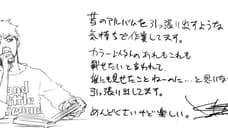 昔のアルバムを引っ張り出すような
気持ちで作業してます。
カラーぶんなんの あれもこれも
載せたい と言われて
誰にも見せたことねーのに…と思いながら
引っ張り出してます。
めんどくさいけど楽しい。